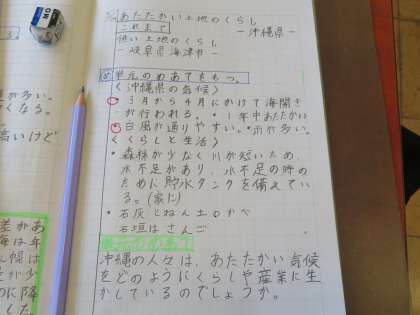 あたたかい土地のくらし
これまで
－沖縄県－
低い土地のくらし
－岐阜県海津市－
め 単元のめあてをもつ。
〈沖縄県の気候〉
3月から4月にかけて海開き
が行われる。・1年中あたたかい
台風が通りやすい。・雨が多い。
〈くらしと生活〉
・森林が少なく川が短いため、
水不足があり、水不足の時の
ために貯水タンクを備えてい
る。(家に)
・石灰とねん土のかべ
・石垣はさんご
沖縄の人々は、あたたかい気候
をどのようにくらしや産業に生
かしているのでしょうか。
が多い。
くなる。
高いけど
差があ
海は年
幅は
が少
に降
した
MONO